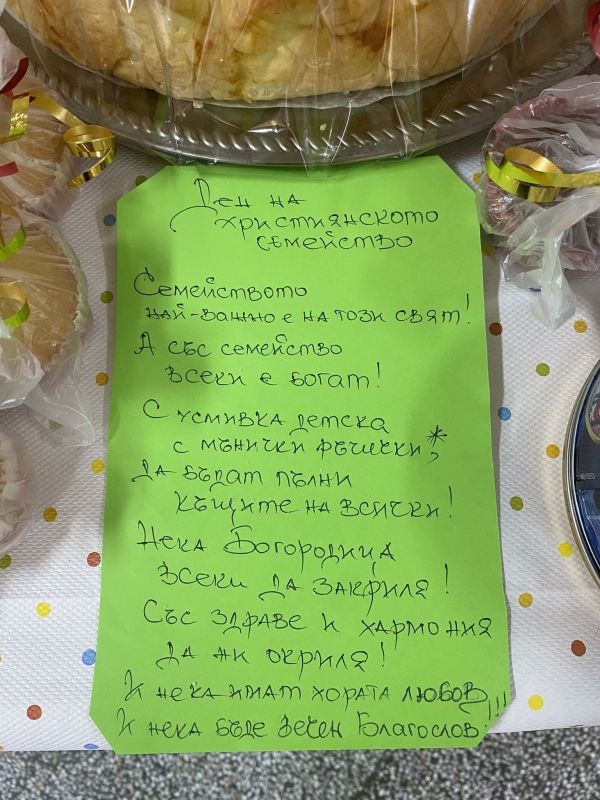 Ден на
християнското
семейство
Семейството
най-важно е на този свят!
А със семейство
всеки е богат!
С усмивка детска
с мънички ръчички,*
да бъдат пълни
къщите на всички!
Нека Богородица
всеки да закриля!
Със здраве и хармония
да ни окриля!
И нека имат хората любов
И нека бъде вечен Благослов!!!